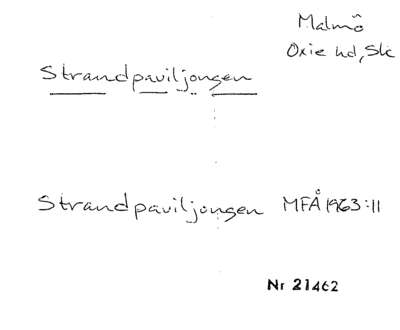 Malmö
Oxie hd, Sk
Strandpaviljongen
Strandpaviljongen MFÅ 1963:11
Nr 21462